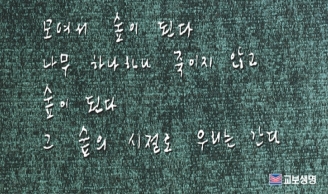 모여서 숲이 된다
나무 하나하나 죽이지 않고
숲이 된다
그 숲의 시절로 우리는 간다
교보생명